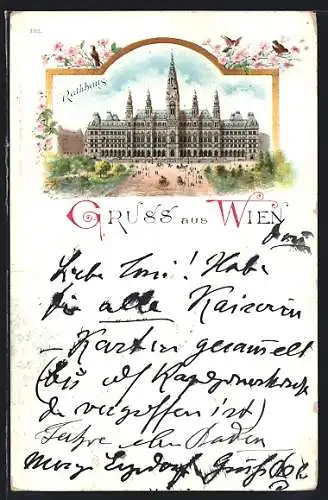 182.
Rathhaus
Gruss aus Wien
Liebe Toni! Habe
für alle Kaiserin
– Karten gesammelt
(bis auf Kapuzinerkirche
die vergriffen ist)
Fahre eben Baden
Morgen